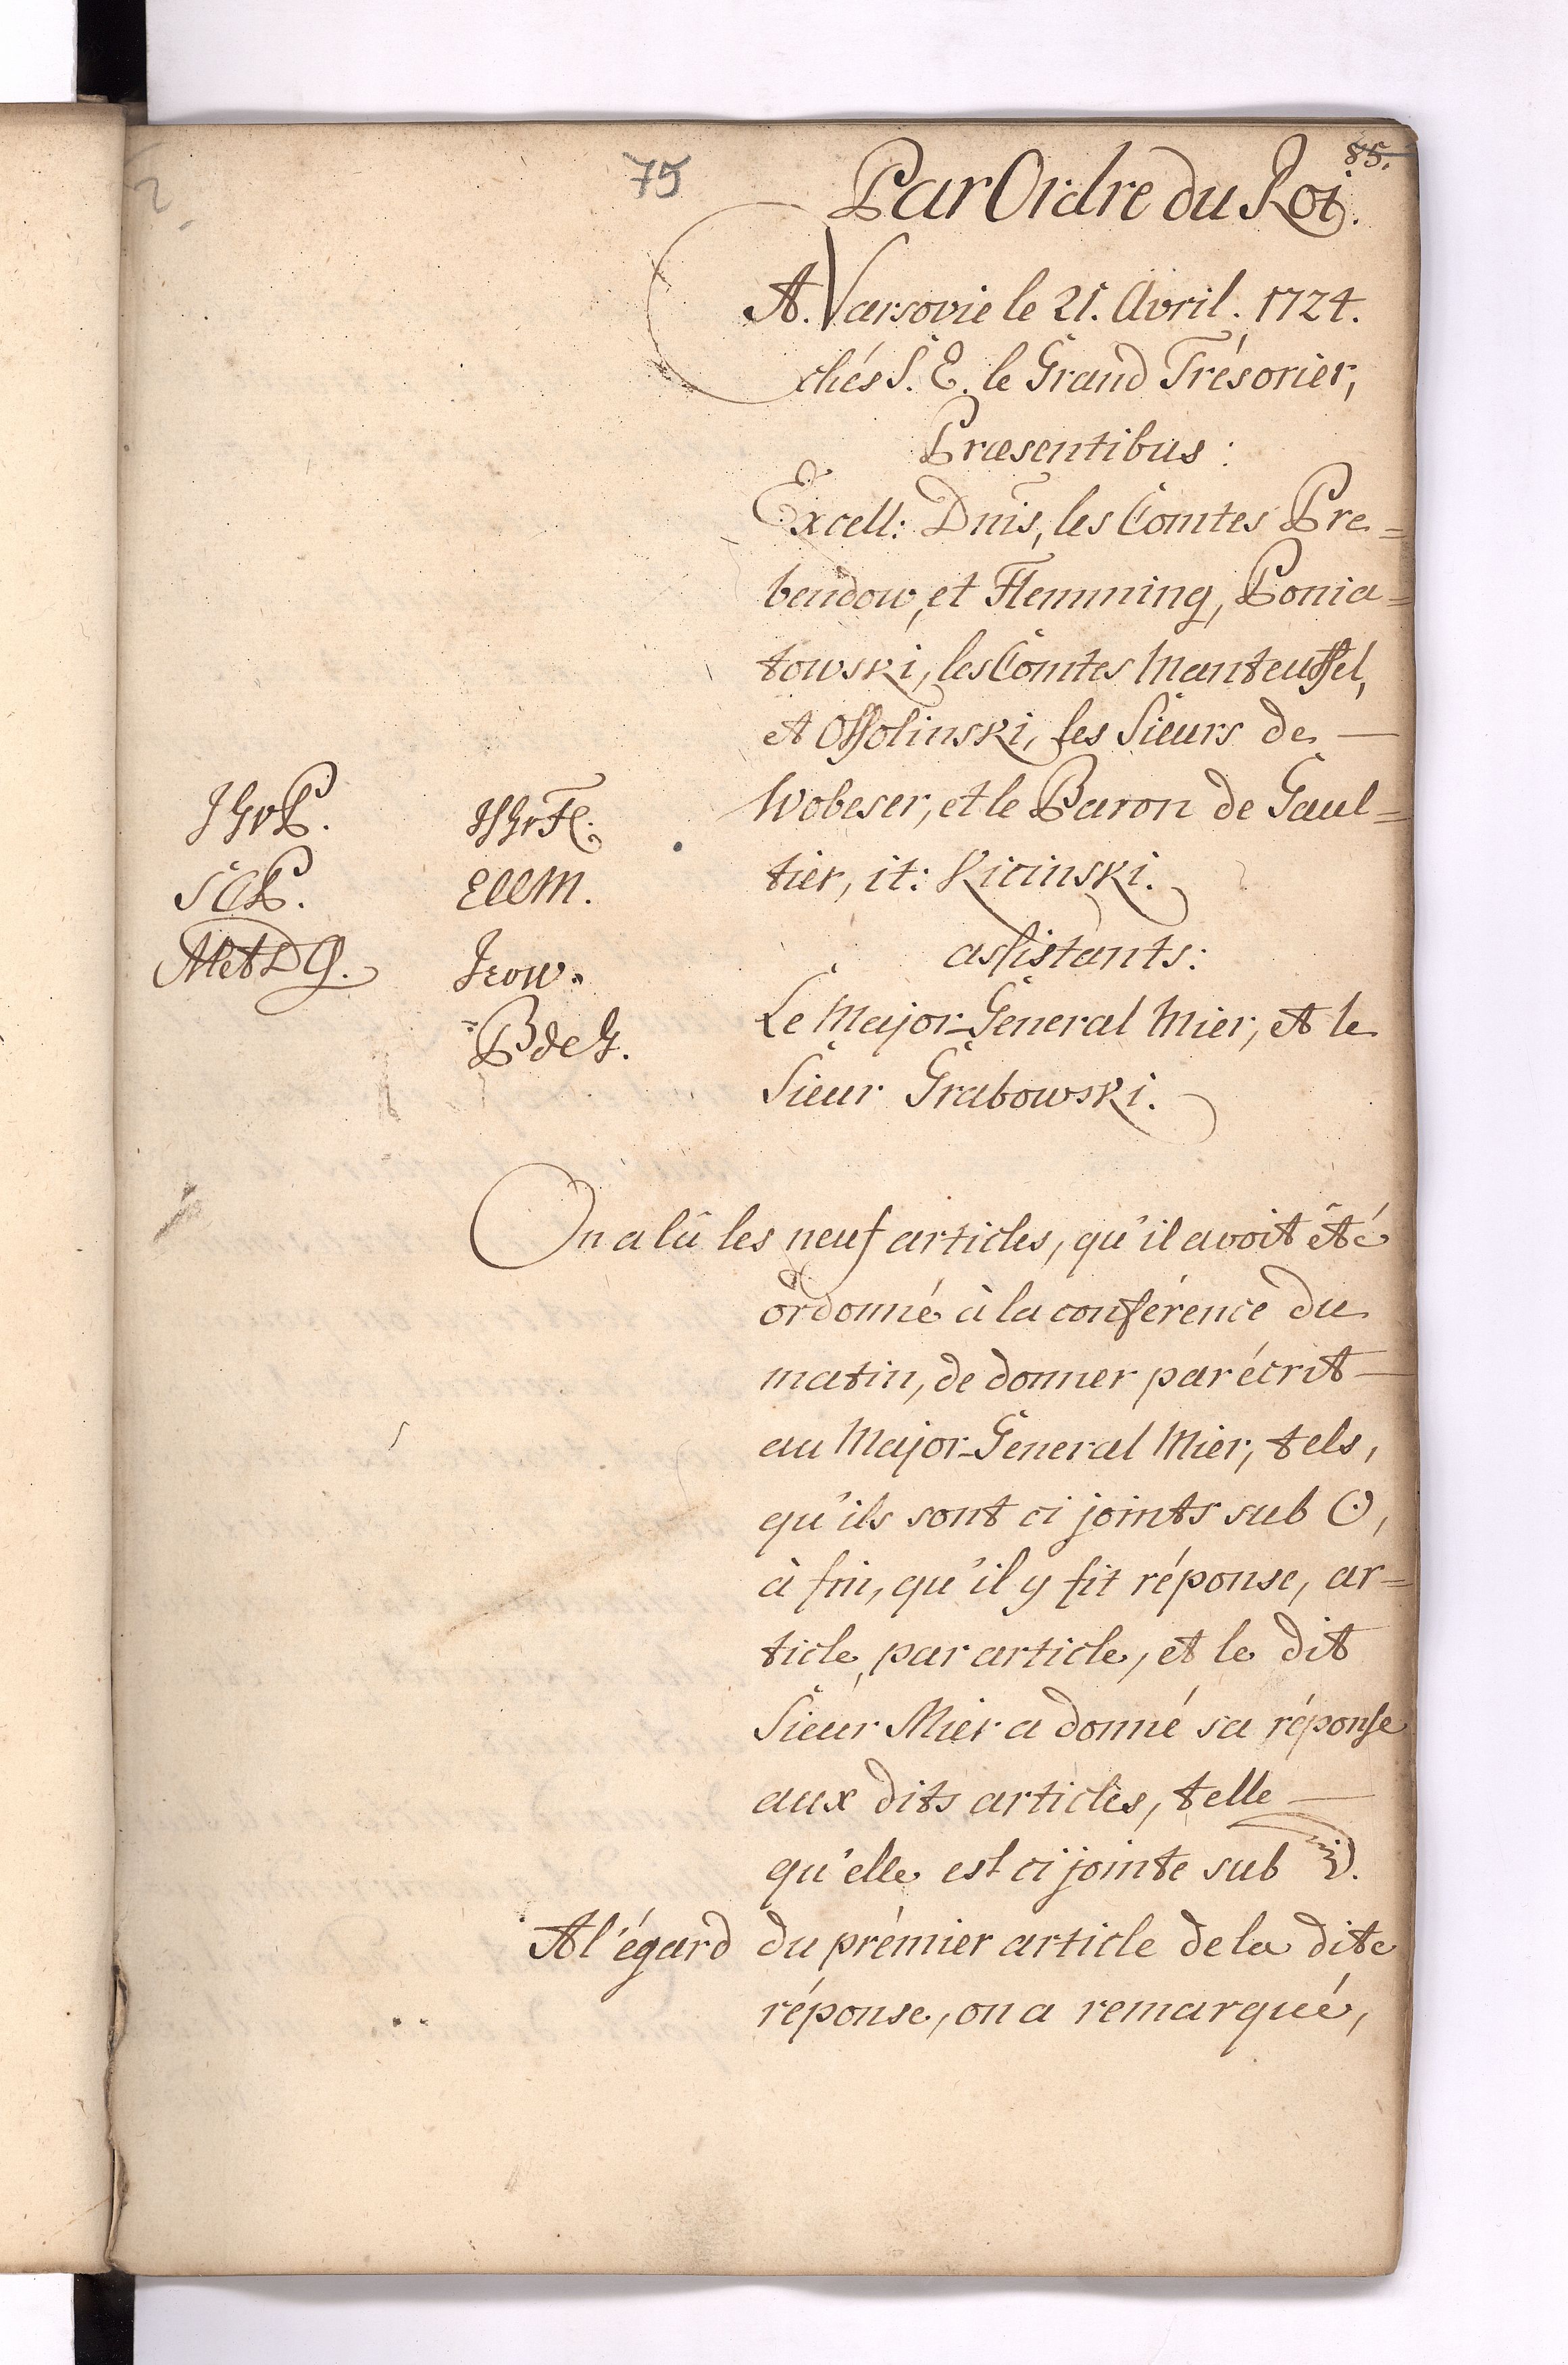 75
85.
Par Ordre du Roi.
A. Varsovie le 21. Avril. 1724.
chés S. E. le Grand Trésorier,
Præsentibus:
Excell: Dnis, les Comtes Pre=
bendow, et Flemming, Ponia=
towski, les Comtes Manteuffel,
et Ossolinski, les Sieurs de
Wobeser, et le Baron de Gaul=
tier, it: Kicinski.
JGvP.
SCP.
ECVM.
Jvow.
BdeG.
assistants:
Le Major-General Mier, et le
Sieur Grabowski.
On a lû les neuf articles, qu'il avoit été
ordonné à la conférence du
matin, de donner par écrit
au Major-General Mier, tels,
qu'ils sont ci joints sub ☉,
à fin, qu'il y fit réponse, ar=
ticle par article, et le dit
Sieur Mier a donné sa réponse
aux dits articles, telle
qu'elle est ci jointe sub ☽.
A l'égard du prémier article de la dite
réponse, on a remarqué,